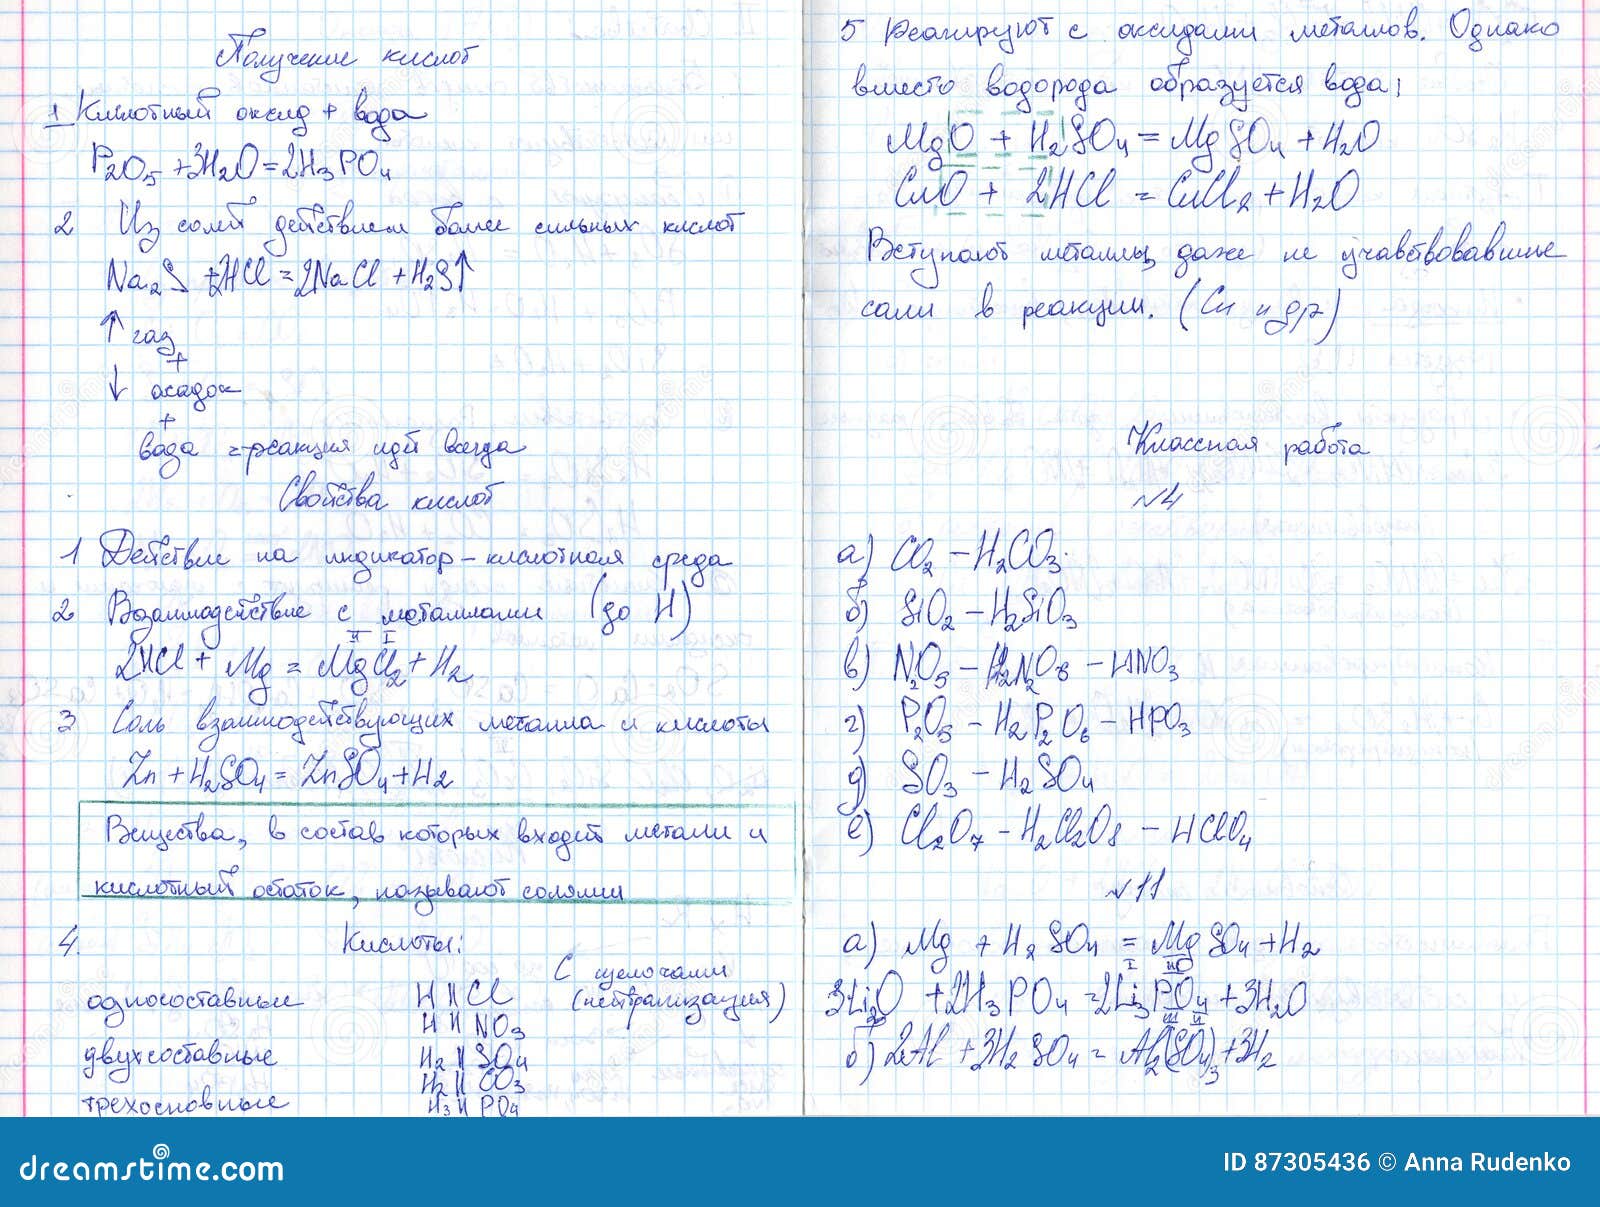 Получение кислот
1 Кислотный оксид + вода
P₂O₅ + 3H₂O = 2H₃PO₄
2 Из солей действием более сильных кислот
Na₂S + 2HCl = 2NaCl + H₂S↑
↑ газ
+
↓ осадок
+
вода = реакция идёт всегда
Свойства кислот
1 Действие на индикатор – кислотная среда
2 Взаимодействие с металлами (до H)
II I
2HCl + Mg = MgCl₂ + H₂
3 Соль взаимодействующих металла и кислоты
Zn + H₂SO₄ = ZnSO₄ + H₂
Вещества, в состав которых входит металл и
кислотный остаток, называют солями
4. Кислоты:
С щелочами
односоставные H II Cl (нетрализация)
H II NO₃
двухсоставные H₂ II SO₄
H₂ II CO₃
трехосновные H₃ II PO₄
5 Реагируют с оксидами металлов. Однако
вместо водорода образуется вода;
MgO + H₂SO₄ = MgSO₄ + H₂O
CuO + 2HCl = CuCl₂ + H₂O
Вступают металлы, даже не учавствовавшие
сами в реакции. (Cu и др)
Классная работа
№4
а) CO₂ – H₂CO₃.
б) SiO₂ – H₂SiO₃
в) N₂O₅ – H₂N₂O₆ – HNO₃
г) P₂O₅ – H₂P₂O₆ – HPO₃
д) SO₃ – H₂SO₄
е) Cl₂O₇ – H₂Cl₂O₈ – HClO₄
№11
а) Mg + H₂SO₄ = MgSO₄ + H₂
I III
3Li₂O + 2H₃PO₄ = 2Li₃PO₄ + 3H₂O
III II
б) 2Al + 3H₂SO₄ = Al₂(SO₄)₃ + 3H₂
dreamstime.com
ID 87305436 © Anna Rudenko